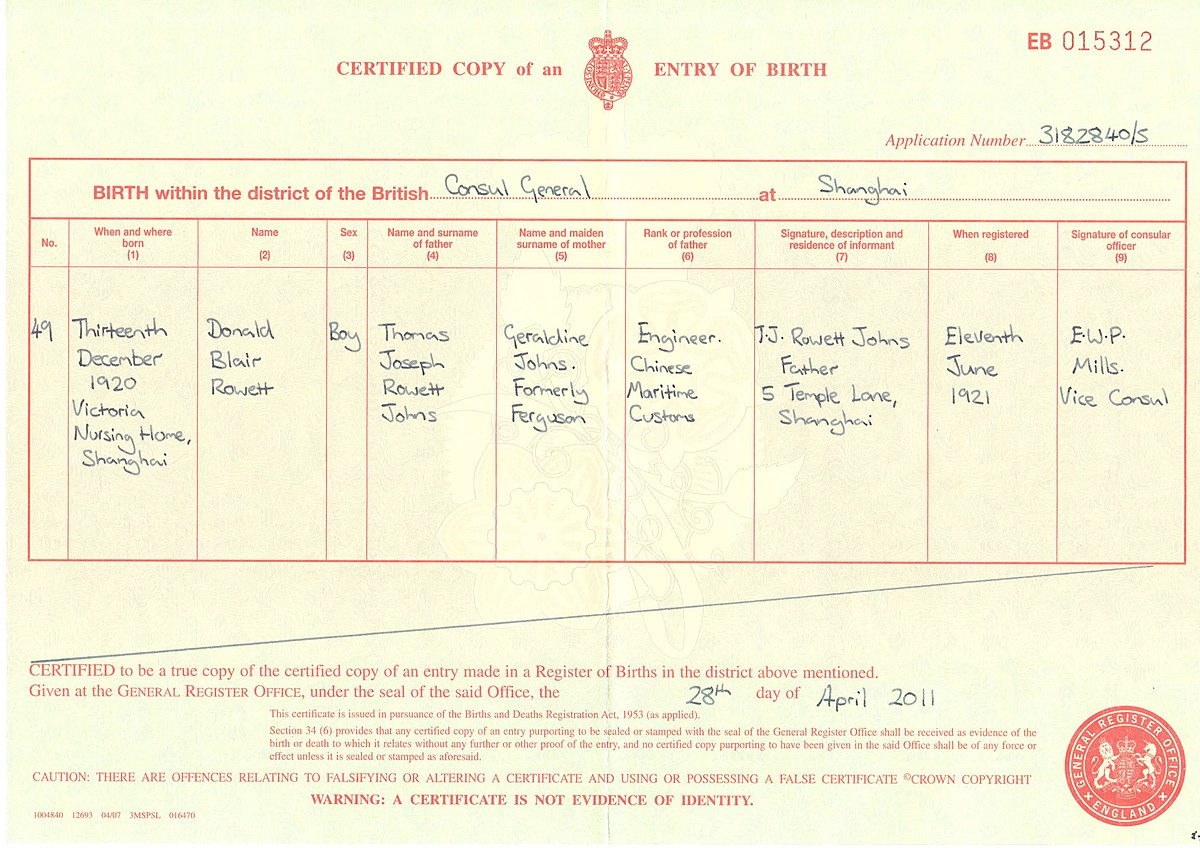 EB 015312
CERTIFIED COPY of an ENTRY OF BIRTH
Application Number 3182840/5
BIRTH within the district of the British Consul General at Shanghai
No.
When and where born (1)
Name (2)
Sex (3)
Name and surname of father (4)
Name and maiden surname of mother (5)
Rank or profession of father (6)
Signature, description and residence of informant (7)
When registered (8)
Signature of consular officer (9)
49
Thirteenth
December
1920
Victoria
Nursing Home,
Shanghai
Donald
Blair
Rowett
Boy
Thomas
Joseph
Rowett
Johns
Geraldine
Johns.
Formerly
Ferguson
Engineer.
Chinese
Maritime
Customs
T.J. Rowett Johns
Father
5 Temple Lane,
Shanghai
Eleventh
June
1921
E.W.P.
Mills.
Vice Consul
CERTIFIED to be a true copy of the certified copy of an entry made in a Register of Births in the district above mentioned.
Given at the GENERAL REGISTER OFFICE, under the seal of the said Office, the 28th day of April 2011
This certificate is issued in pursuance of the Births and Deaths Registration Act, 1953 (as applied).
Section 34 (6) provides that any certified copy of an entry purporting to be sealed or stamped with the seal of the General Register Office shall be received as evidence of the
birth or death to which it relates without any further or other proof of the entry, and no certified copy purporting to have been given in the said Office shall be of any force or
effect unless it is sealed or stamped as aforesaid.
CAUTION: THERE ARE OFFENCES RELATING TO FALSIFYING OR ALTERING A CERTIFICATE AND USING OR POSSESSING A FALSE CERTIFICATE ©CROWN COPYRIGHT
WARNING: A CERTIFICATE IS NOT EVIDENCE OF IDENTITY.
1004840 12693 04/07 3MSPSL 016470
GENERAL REGISTER OFFICE
ENGLAND